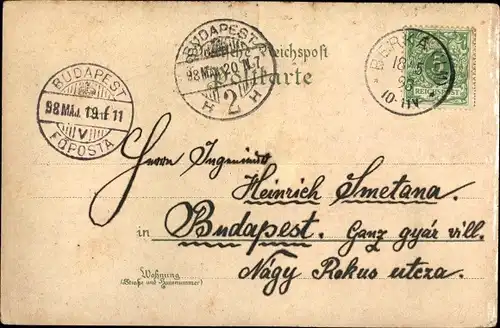 Deutsche Reichspost
Postkarte
BUDAPEST
98 MÁJ. 19. É 11
V
FŐPOSTA
BUDAPEST
98 MÁJ. 20. N. 7
H 2 H
BERKA
18
98
10-11V
REICHSPOST
Herrn Ingenieur
Heinrich Smetana.
in Budapest. Ganz gyár vill.
Nagy Rokus utcza.
Wohnung
(Straße und Hausnummer)